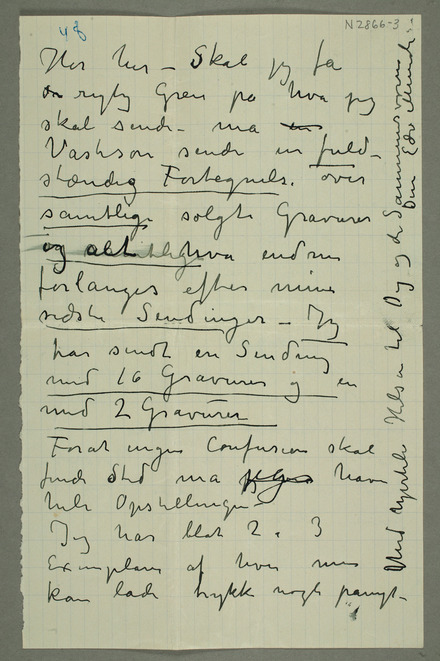 48
N 2866-3
Hør her – Skal jeg få
rigtig Grei på hva jeg
skal sende – må
sende en fuld-
stændig Fortegnels. over
samtlige solgte Gravurer
og alt hva endnu
forlanges efter mine
sidste Sendinger – Jeg
har sendt en Sending
med 16 Gravurer og en
med 2 Gravurer
Forat ingen Confusion skal
finde Sted må jeg have
hele Opstillingen –
Jeg har blot 2 a 3
Exemplarer af hver men
kan lade trykke nogle
Med hjertelig Hilsen til Dig og de
Din Edv Munch